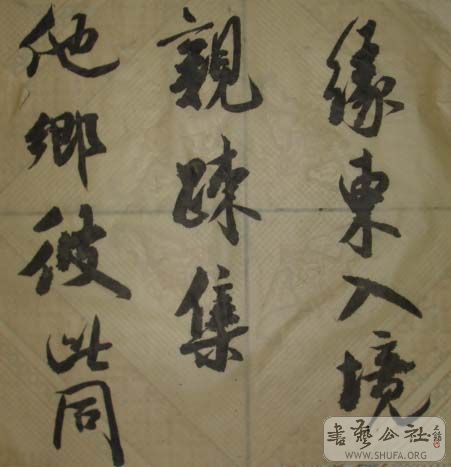 缘東入境
親疎集
他鄉彼此同
書藝公社
WWW.SHUFA.ORG